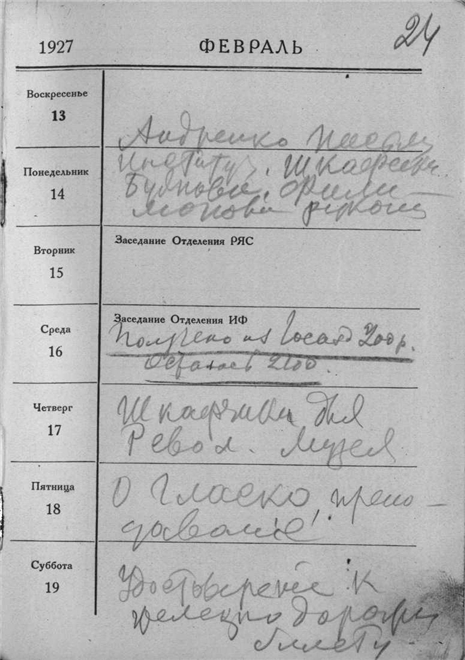 24
1927 ФЕВРАЛЬ
Воскресенье
13
Андренко
Понедельник
14
Институт, Шкафчики
Вторник
15
Заседание Отделения РЯС
Среда
16
Заседание Отделения ИФ
Получено из 200 р.
Осталось 2100.
Четверг
17
Шкафчики для
Револ. Музея
Пятница
18
О Гласко, препо-
давание
Суббота
19
Удостоверение к
железнодорожн
билету